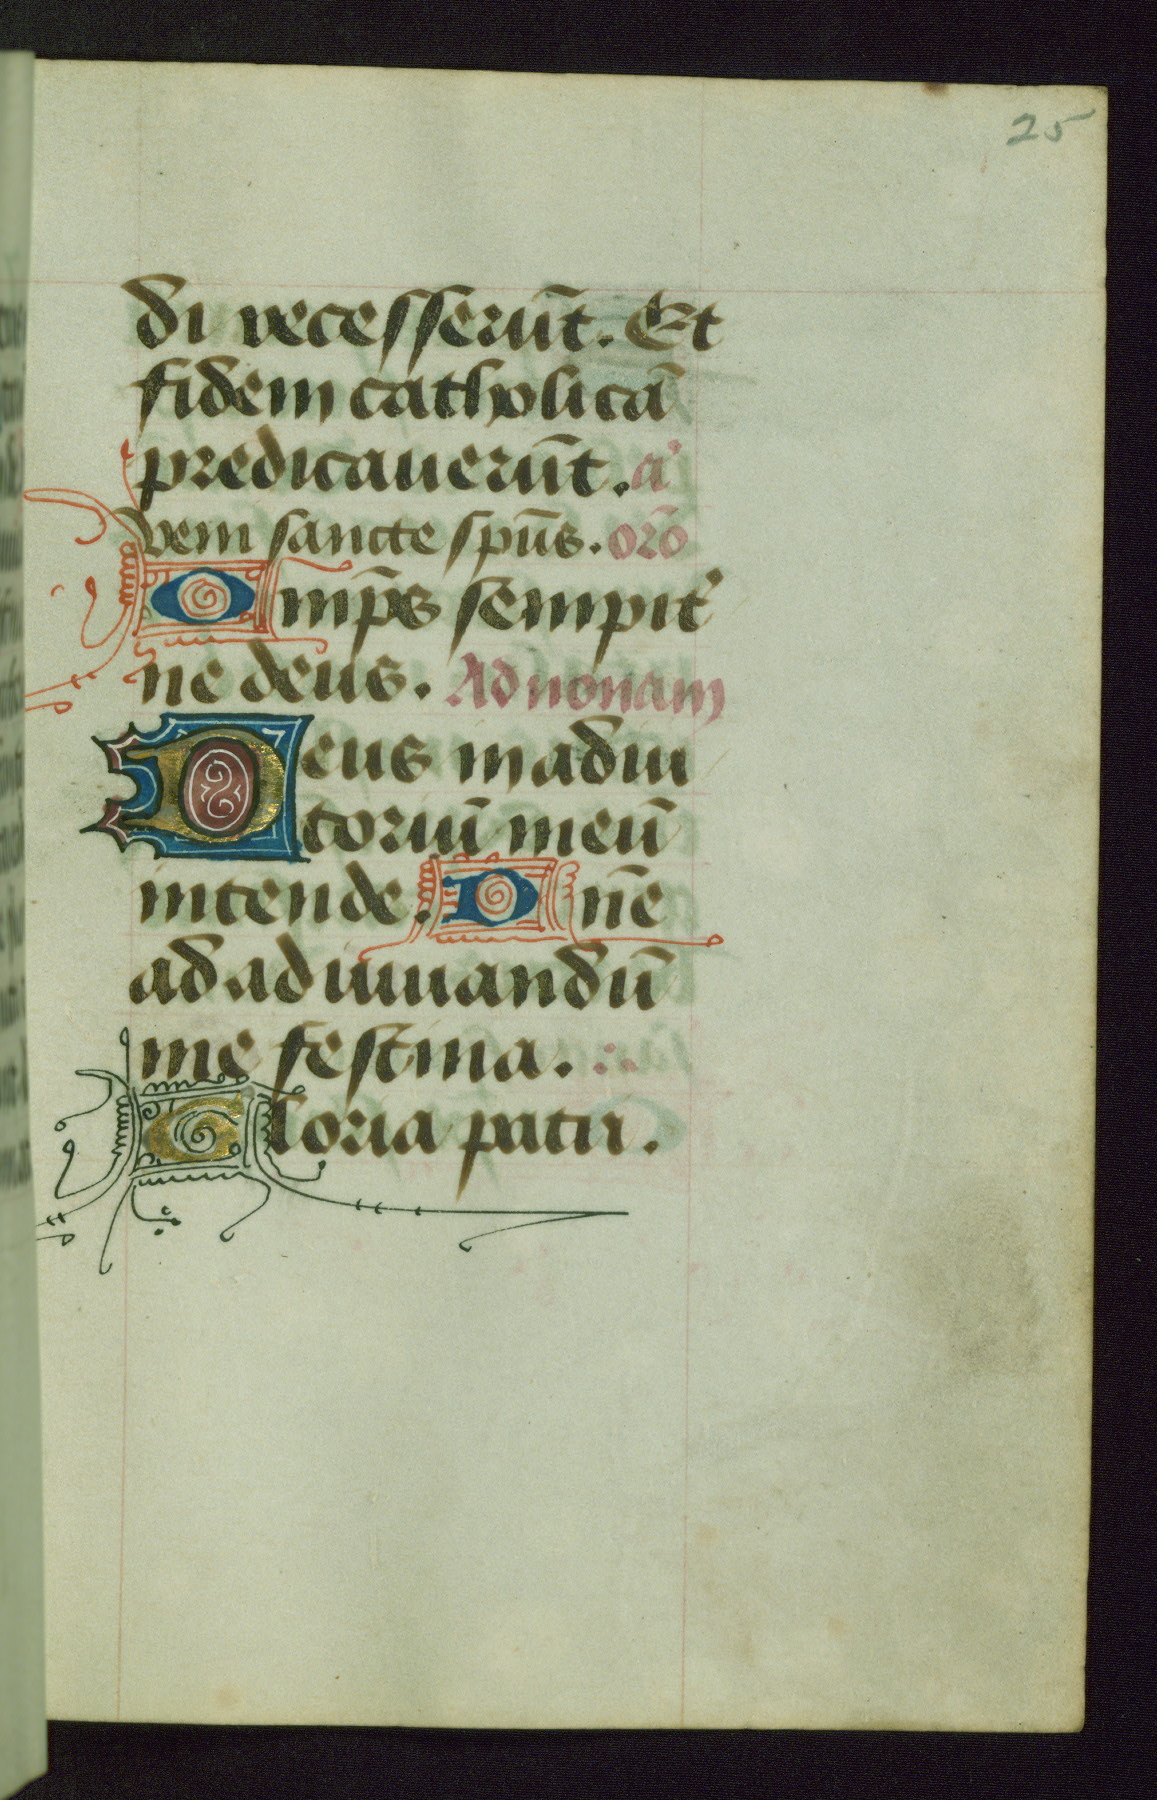 25
di recesserūt. Et
fidem catholicā
predicauerūt. a'
veni sancte spūs. orō
Omp̄s sempit'
ne deus. Ad nonam
Deus in adiu
toriū meū
intende. Dn̄e
ad adiuuandū
me festina.
Gloria patri.